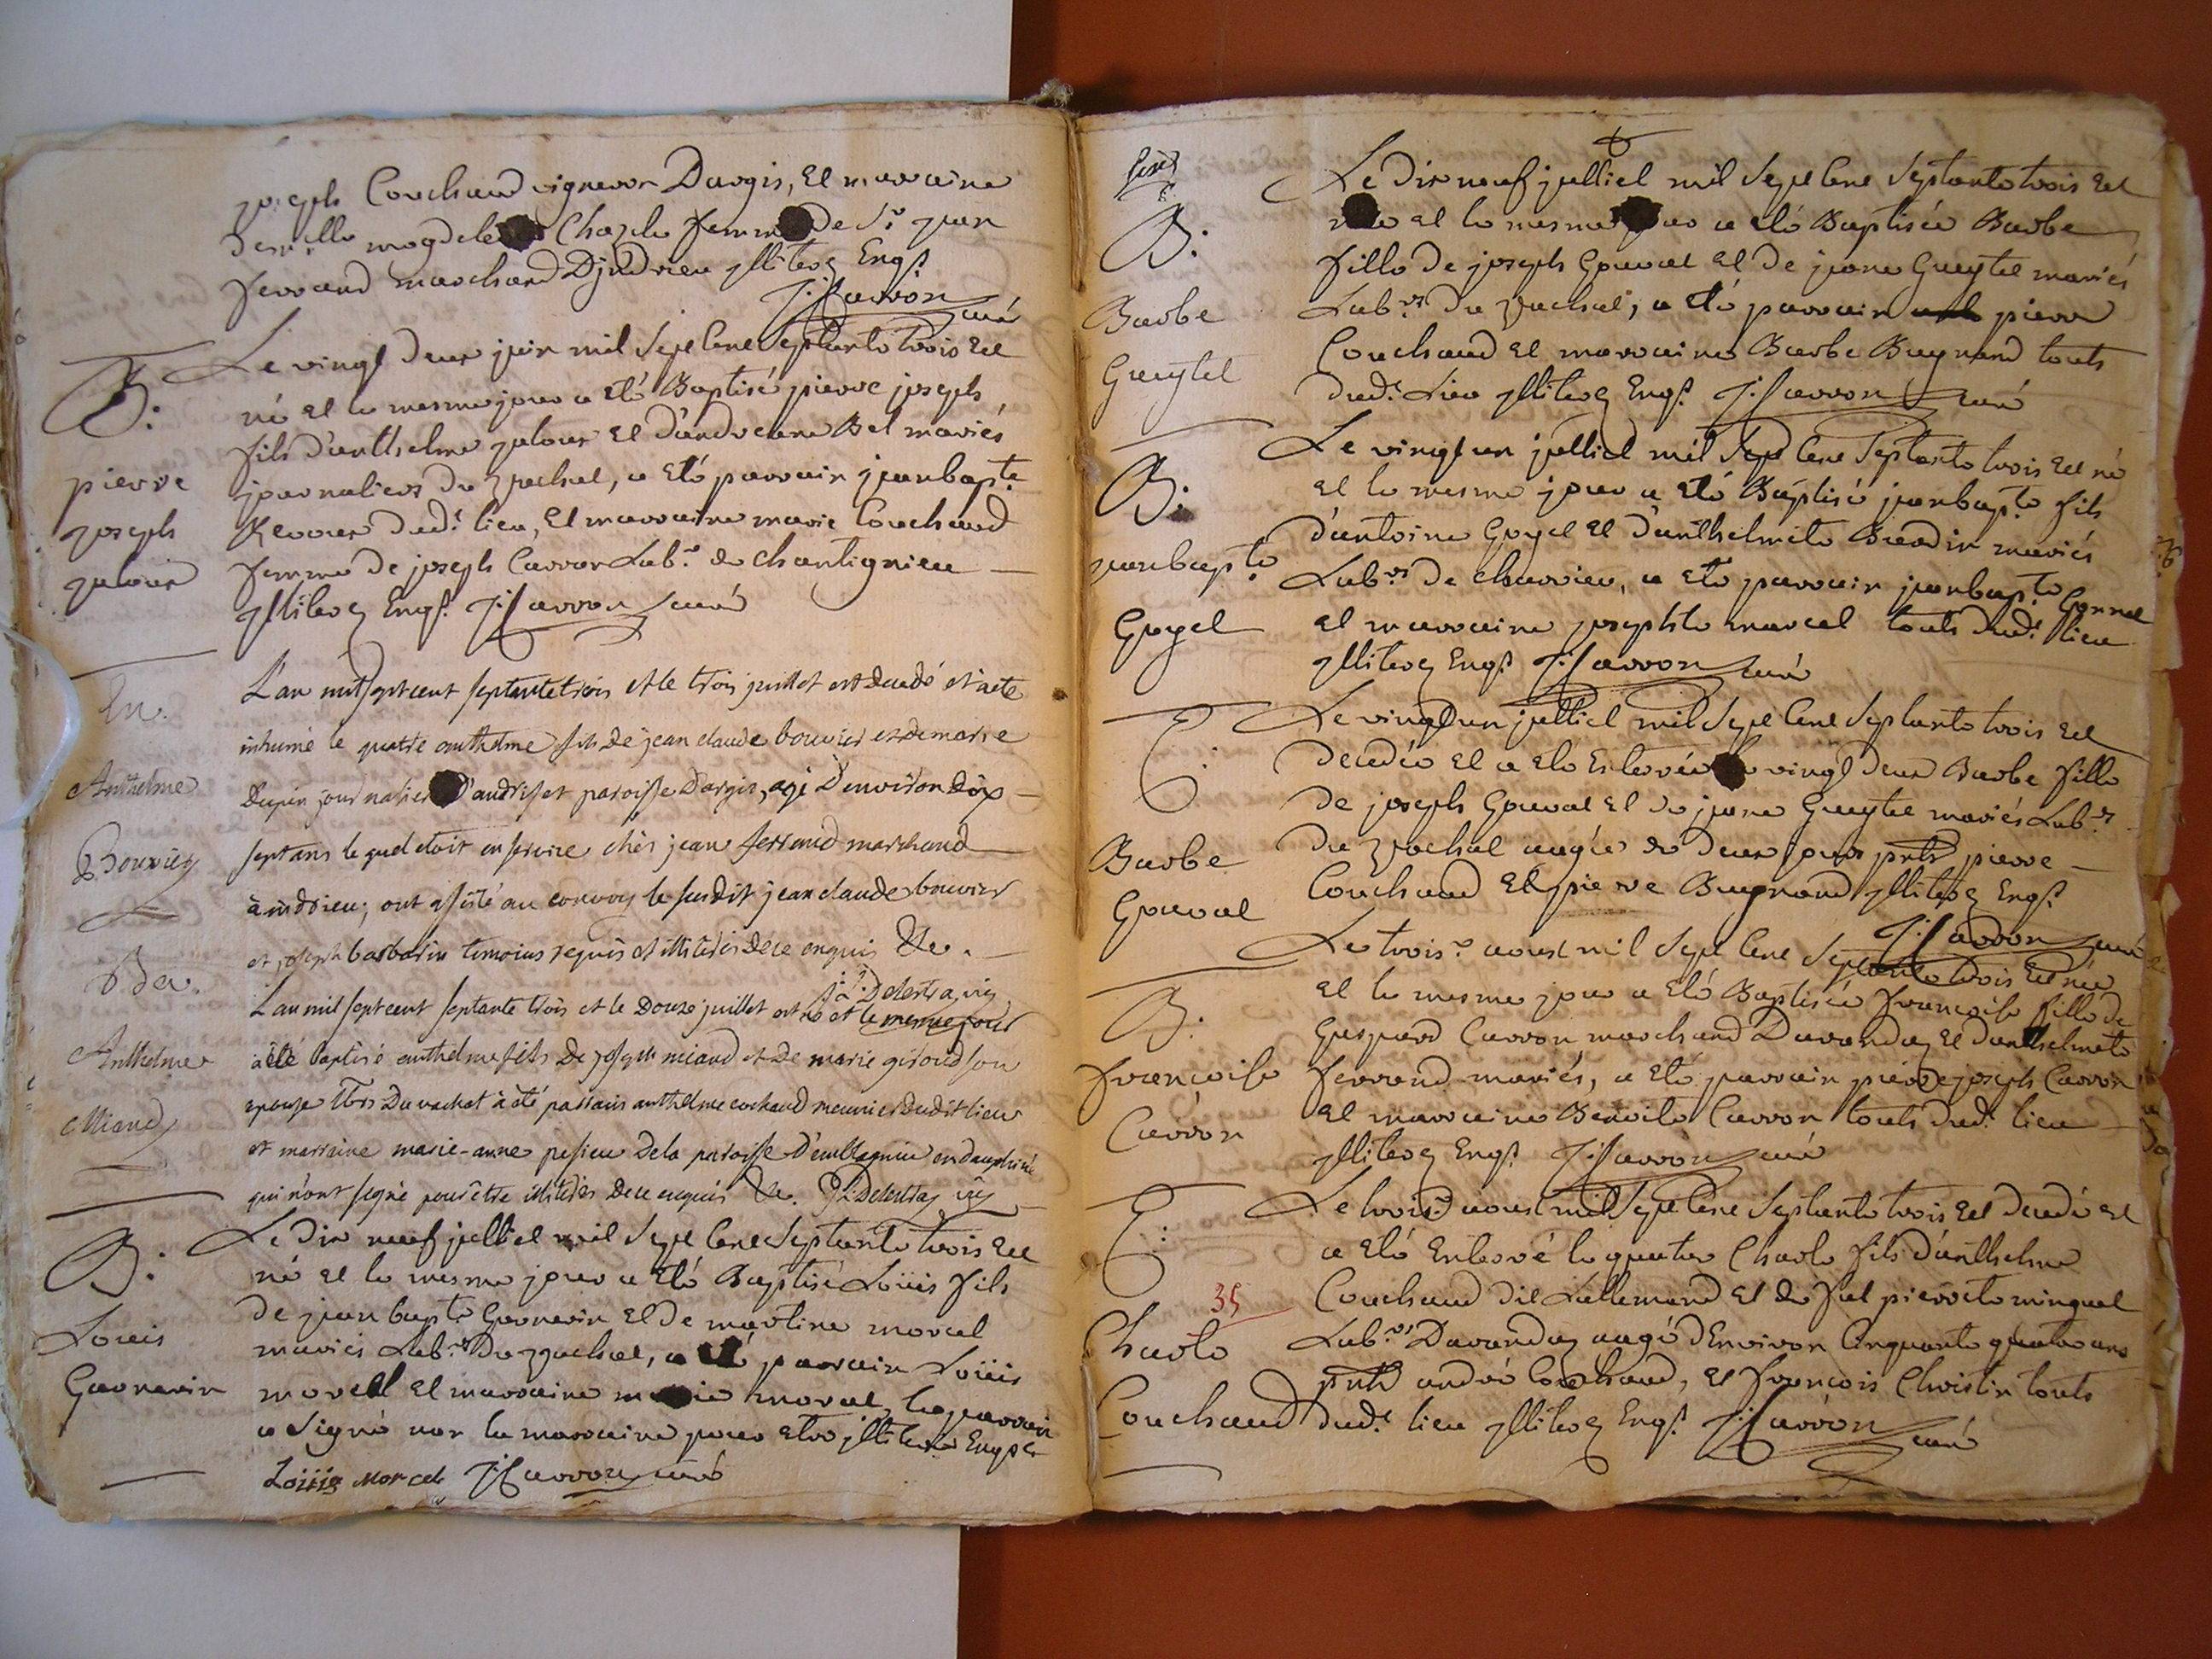 joseph Couchaud vigneron Dargis, Et marraine
Chazele femme De Sr jean
ferrand marchand Djndrieu jlliterez Enqs.
J: Carron curé
B: Le vingt Deux juin mil Sept Cent Septante trois Est
né Et le mesme jour a Eté Baptisé pierre joseph
fils D'anthelme jalour Et D'andreane Bel mariés
pierre journaliers Du vachat, a Eté parrain jeanbapte.
joseph dud. lieu, Et marraine marie Couchaud
jalour femme De joseph Carron Labr. de Chantignieu
jlliterez Enqs. J: Carron curé
En. L'an mil sept cent septante trois et le trois juillet est decedé et a eté
inhumé le quatre anthelme fils De jean claude bouvier et de marie
Anthelme Dupin journalier D'andrist paroisse D'argis, agé D'environ dix
Bouvier sept ans le quel etoit en service chès jean ferrand marchand
à indrieu; ont assisté au convoy le susdit jean claude bouvier
et joseph barbarin temoins requis et illiterés de ce enquis &c.
Ba. J: Delestra, vic
L'an mil sept cent septante trois et le Douze juillet est né et le meme jour
Anthelme a été baptisé anthelme fils De joseph miand et De marie giroud son
Miand epouse Du vachat a été parrain anthelme cochaud meunier Dudit lieu
et marraine marie-anne pesieu De la paroisse D'emblagnieu en dauphiné
qui n'ont signé pour être illiterés De ce enquis &c. J: Delestra, vic
B: Le Dix neuf julliet mil Sept Cent Septante trois Est
né Et le mesme jour a Eté Baptisé Loüis fils
Louis De jean bapte. Gavnerin Et De martine morcel
mariés Labrs. Du vachat, a Eté parrain Loüis
Gavnerin morcel Et marraine marie morcel, le parrain
a Signé non la marraine pour Etre jlliterée Enqse.
Loiiis Morcel J: Carron curé
Le Dix neuf julliet mil Sept Cent Septante trois Est
B: née Et le mesme jour a Eté Baptisée Barbe
fille De joseph Gouval Et De jeane Gueytet mariés
Barbe Labrs. Du vachat, a Eté parrain pierre
Gueytet Couchaud Et marraine Barbe Bugnand touts
dud. Lieu jlliterez Enqs. J: Carron curé
Le vingt un julliet mil Sept Cent Septante trois Est né
B: Et le mesme jour a Eté Baptisé jeanbapte. fils
D'antoine Goyet Et D'anthelmete Bardin mariés
jeanbapte. Labrs. De Charvieu, a Eté parrain jeanbapte. Gonnet
Goyet Et marraine josephte marcel touts dud. lieu
jlliterez Enqs. J: Carron curé
E: Le vingt un julliet mil Sept Cent Septante trois Est
Decedée Et a Eté Enterrée le vingt Deux Barbe fille
De joseph Gouval Et De jeane Gueytet mariés Labrs.
Barbe Du vachat aagée de Deux jours pnts pierre
Gouval Couchaud Et pierre Bugnand jlliterez Enqs.
J: Carron curé
Le trois aoust mil Sept Cent Septante trois Est née
B: Et le mesme jour a Eté Baptisée françoise fille De
Gaspard Carron marchand Davanday Et Danthelmete
françoise ferrand mariés, a Eté parrain pierre joseph Carron
Carron Et marraine Benoite Carron touts dud. lieu
jlliterez Enqs. J: Carron curé
E: Le trois aoust mil Sept Cent Septante trois Est Decedé Et
a Eté Enterré le quatre Charle fils D'anthelme
35 Couchaud dit Lallemand Et de fut pierrete minguet
Charle Labrs. Davanday aagé D'Environ Cinquante quatre ans
pnts andré Couchaud, Et françois Christin touts
Couchaud dud. lieu jlliterez Enqs. J: Carron curé